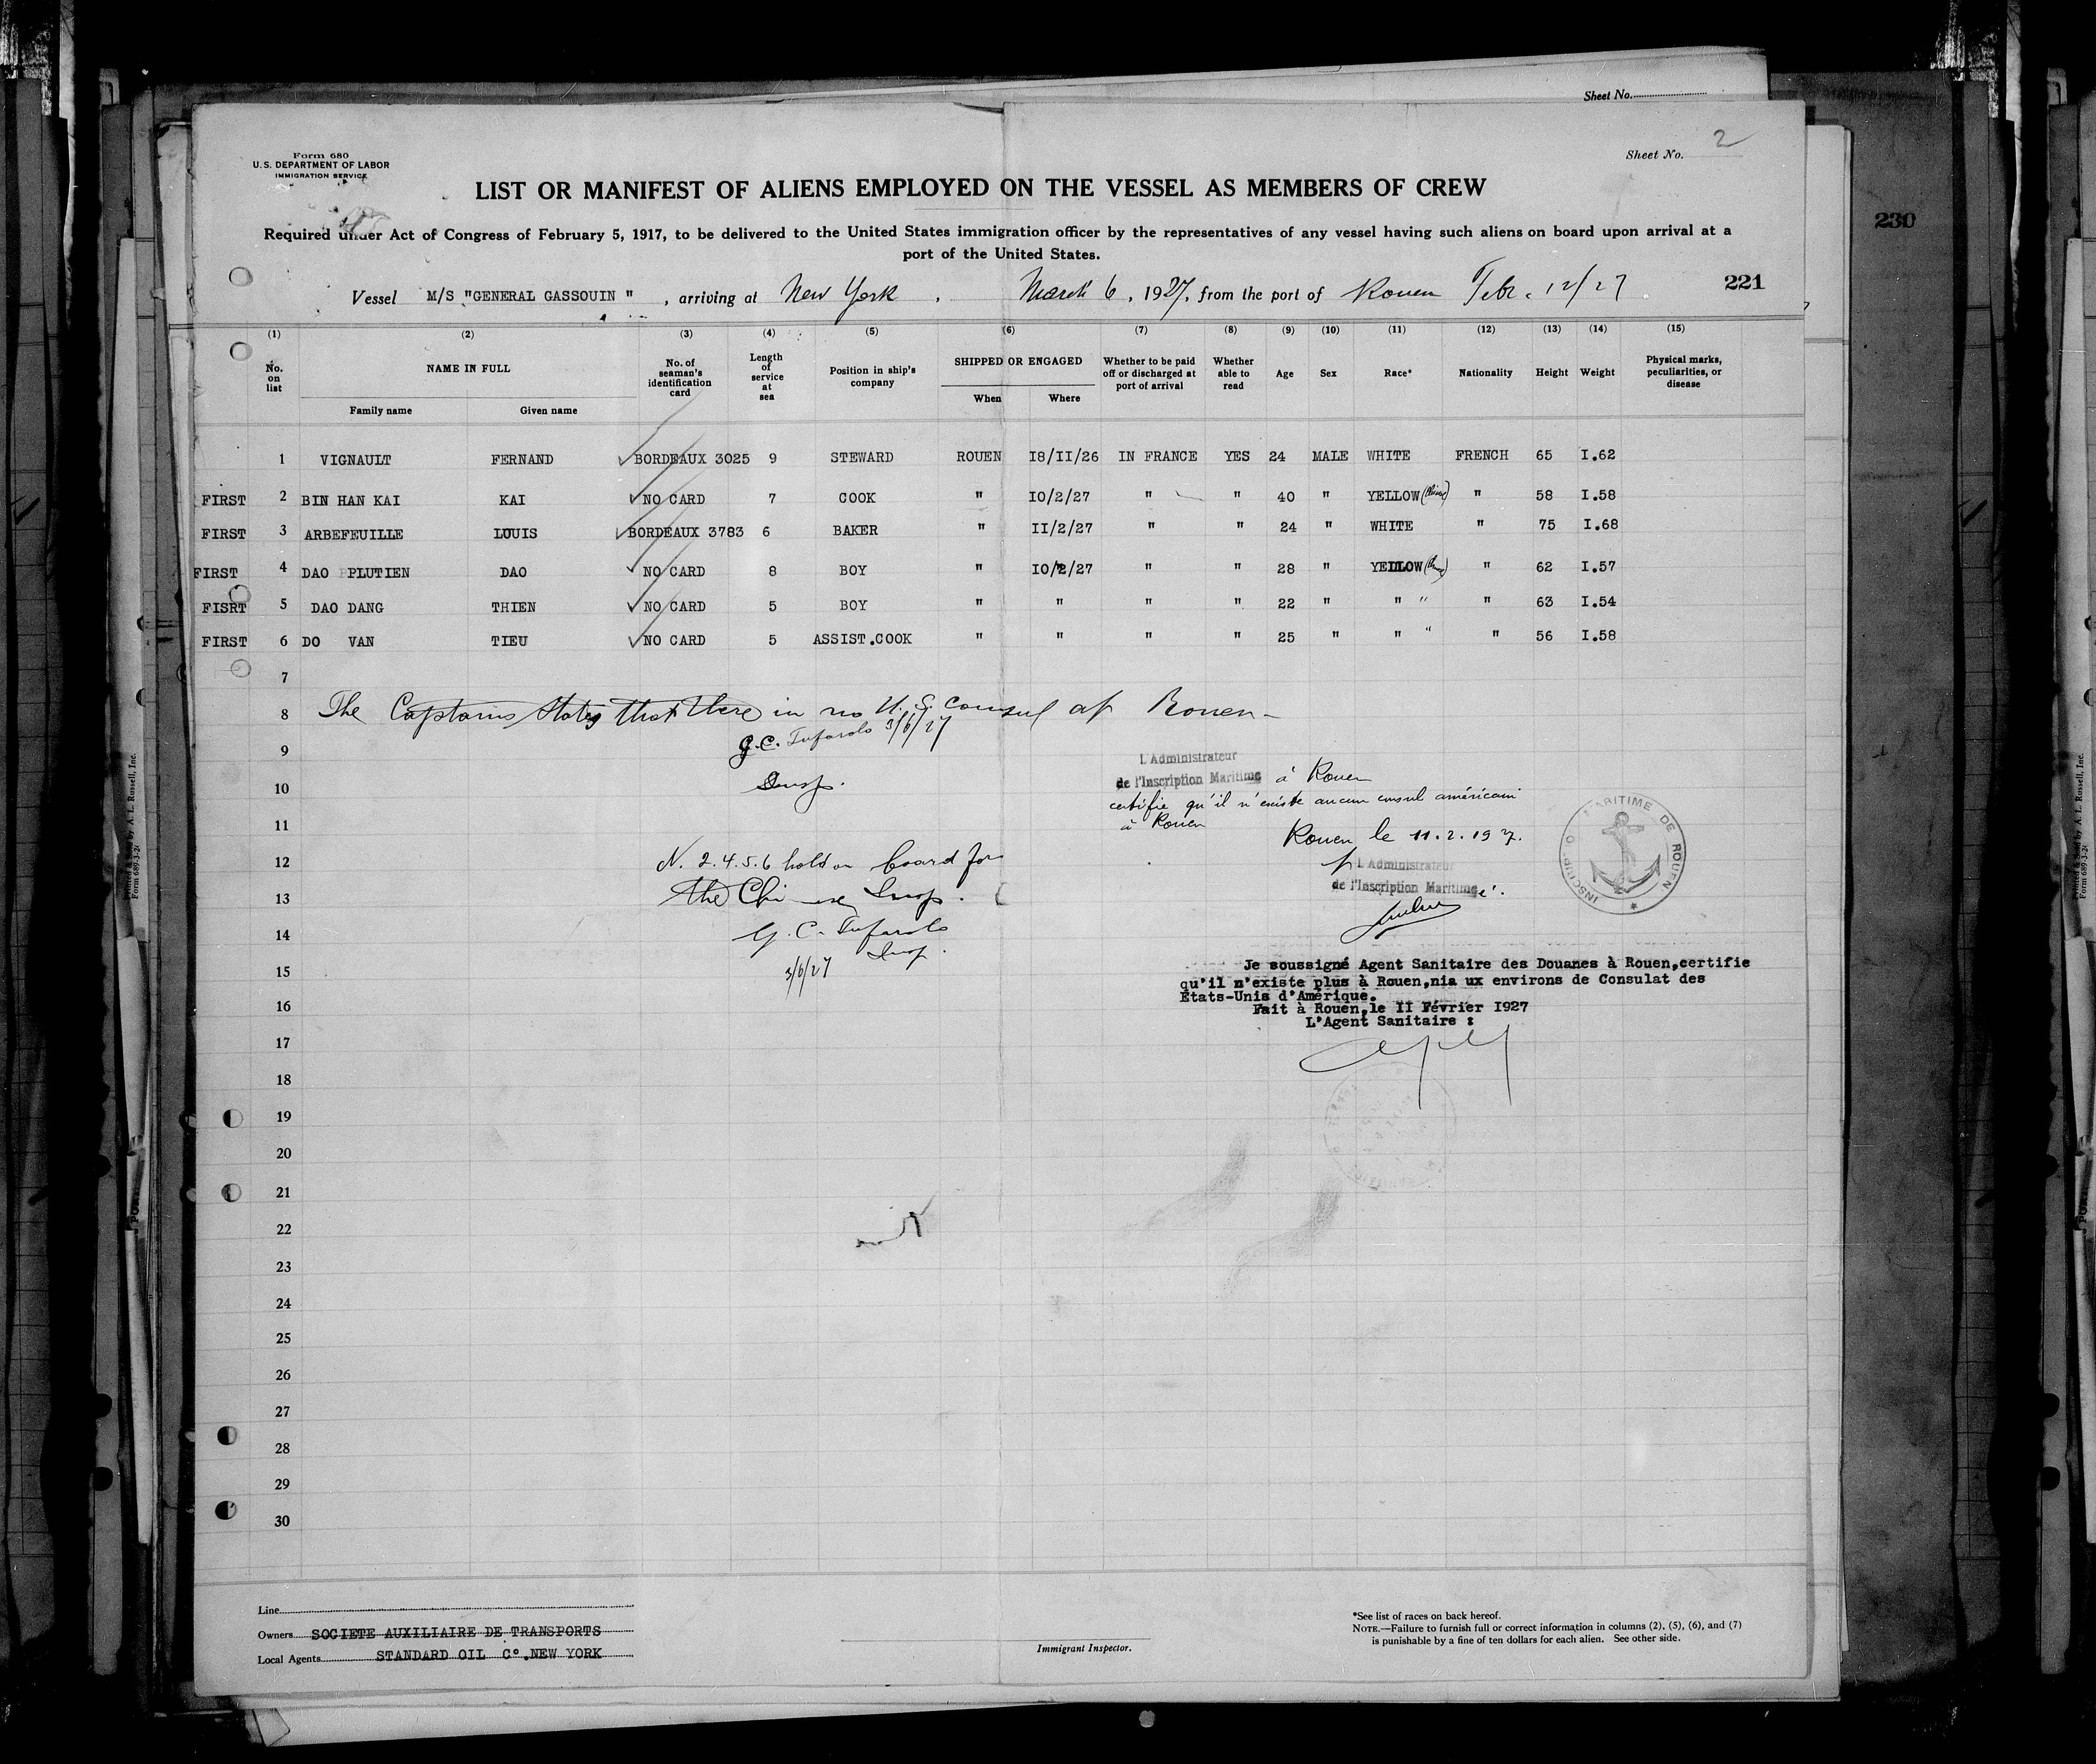 Sheet No.
2
Sheet No.
Form 680
U.S. DEPARTMENT OF LABOR
IMMIGRATION SERVICE
LIST OR MANIFEST OF ALIENS EMPLOYED ON THE VESSEL AS MEMBERS OF CREW
230
Required under Act of Congress of February 5, 1917, to be delivered to the United States immigration officer by the representatives of any vessel having such aliens on board upon arrival at a
port of the United States.
Vessel M/S "GENERAL GASSOUIN ", arriving at New York, March 6, 1927, from the port of Rouen Febr. 12/27
221
(1) (2) (3) (4) (5) (6) (7) (8) (9) (10) (11) (12) (13) (14) (15)
No. on list
NAME IN FULL
Family name Given name
No. of seaman's identification card
Length of service at sea
Position in ship's company
SHIPPED OR ENGAGED
When Where
Whether to be paid off or discharged at port of arrival
Whether able to read
Age
Sex
Race*
Nationality
Height
Weight
Physical marks, peculiarities, or disease
1 VIGNAULT FERNAND BORDEAUX 3025 9 STEWARD ROUEN I8/II/26 IN FRANCE YES 24 MALE WHITE FRENCH 65 I.62
FIRST 2 BIN HAN KAI KAI NO CARD 7 COOK " IO/2/27 " " 40 " YELLOW " 58 I.58
FIRST 3 ARBEFEUILLE LOUIS BORDEAUX 3783 6 BAKER " II/2/27 " " 24 " WHITE " 75 I.68
FIRST 4 DAO PLUTIEN DAO NO CARD 8 BOY " IO/2/27 " " 28 " YELLOW " 62 I.57
FISRT 5 DAO DANG THIEN NO CARD 5 BOY " " " " 22 " " " " 63 I.54
FIRST 6 DO VAN TIEU NO CARD 5 ASSIST.COOK " " " " 25 " " " " 56 I.58
7
8 The Captains states that there in no U.S. consul at Rouen-
9 G.C. Tufarolo 3/6/27
10 Insp.
11
12 N. 2.4.5.6 hold on board for
13 the Chinese Insp.
14 G.C. Tufarolo
Insp.
15 3/6/27
16
17
18
19
20
21
22
23
24
25
26
27
28
29
30
L'Administrateur
de l'Inscription Maritime à Rouen
certifie qu'il n'existe aucun consul américain
à Rouen
Rouen le 11.2.1927.
p L'Administrateur
de l'Inscription Maritime
INSCRIPTION MARITIME DE ROUEN
Je soussigné Agent Sanitaire des Douanes à Rouen,certifie
qu'il n'existe plus à Rouen,nia ux environs de Consulat des
Etats-Unis d'Amérique.
Fait à Rouen,le II Février I927
L'Agent Sanitaire :
Line
Owners SOCIETE AUXILIAIRE DE TRANSPORTS
Local Agents STANDARD OIL C°.NEW YORK
Immigrant Inspector.
*See list of races on back hereof.
NOTE.—Failure to furnish full or correct information in columns (2), (5), (6), and (7)
is punishable by a fine of ten dollars for each alien. See other side.